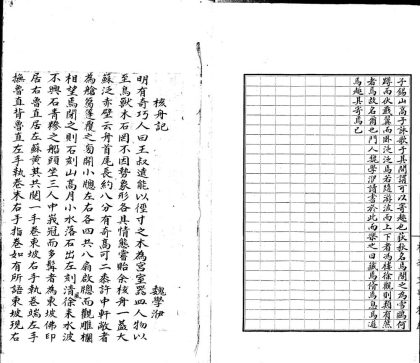 子錫山高子詠歌子其間謂可以寄趣也故歌名馬閒之為雪鷗何
蹲而伏戢翼而泛泛焉若隨游流而上下者為樓徐觀則頹有焦
者焉故名爾也門人魏學洢請書於此而築之曰藏焉脩焉息焉遊
焉趣其寄焉已
核舟記
魏學洢
明有奇巧人曰王叔遠能以徑寸之木為宮室器皿人物以
至鳥獸木石罔不因勢象形各具情態嘗貽余核舟一蓋大
蘇泛赤壁云舟首尾長約八分有奇高可二黍許中軒敞者
為艙篛篷覆之旁開小牕左右各四共八扇啟牕而觀雕欄
相望焉閉之則石刻山高月小水落石出左刻清徐來水波
不興石青糝之船頭坐三人中峩冠而多髯者為東坡佛印
居右魯直居左蘇黃共閱一手卷東坡右手執卷端左手
撫魯直背魯直左手執卷末右手指卷如有所語東坡現右